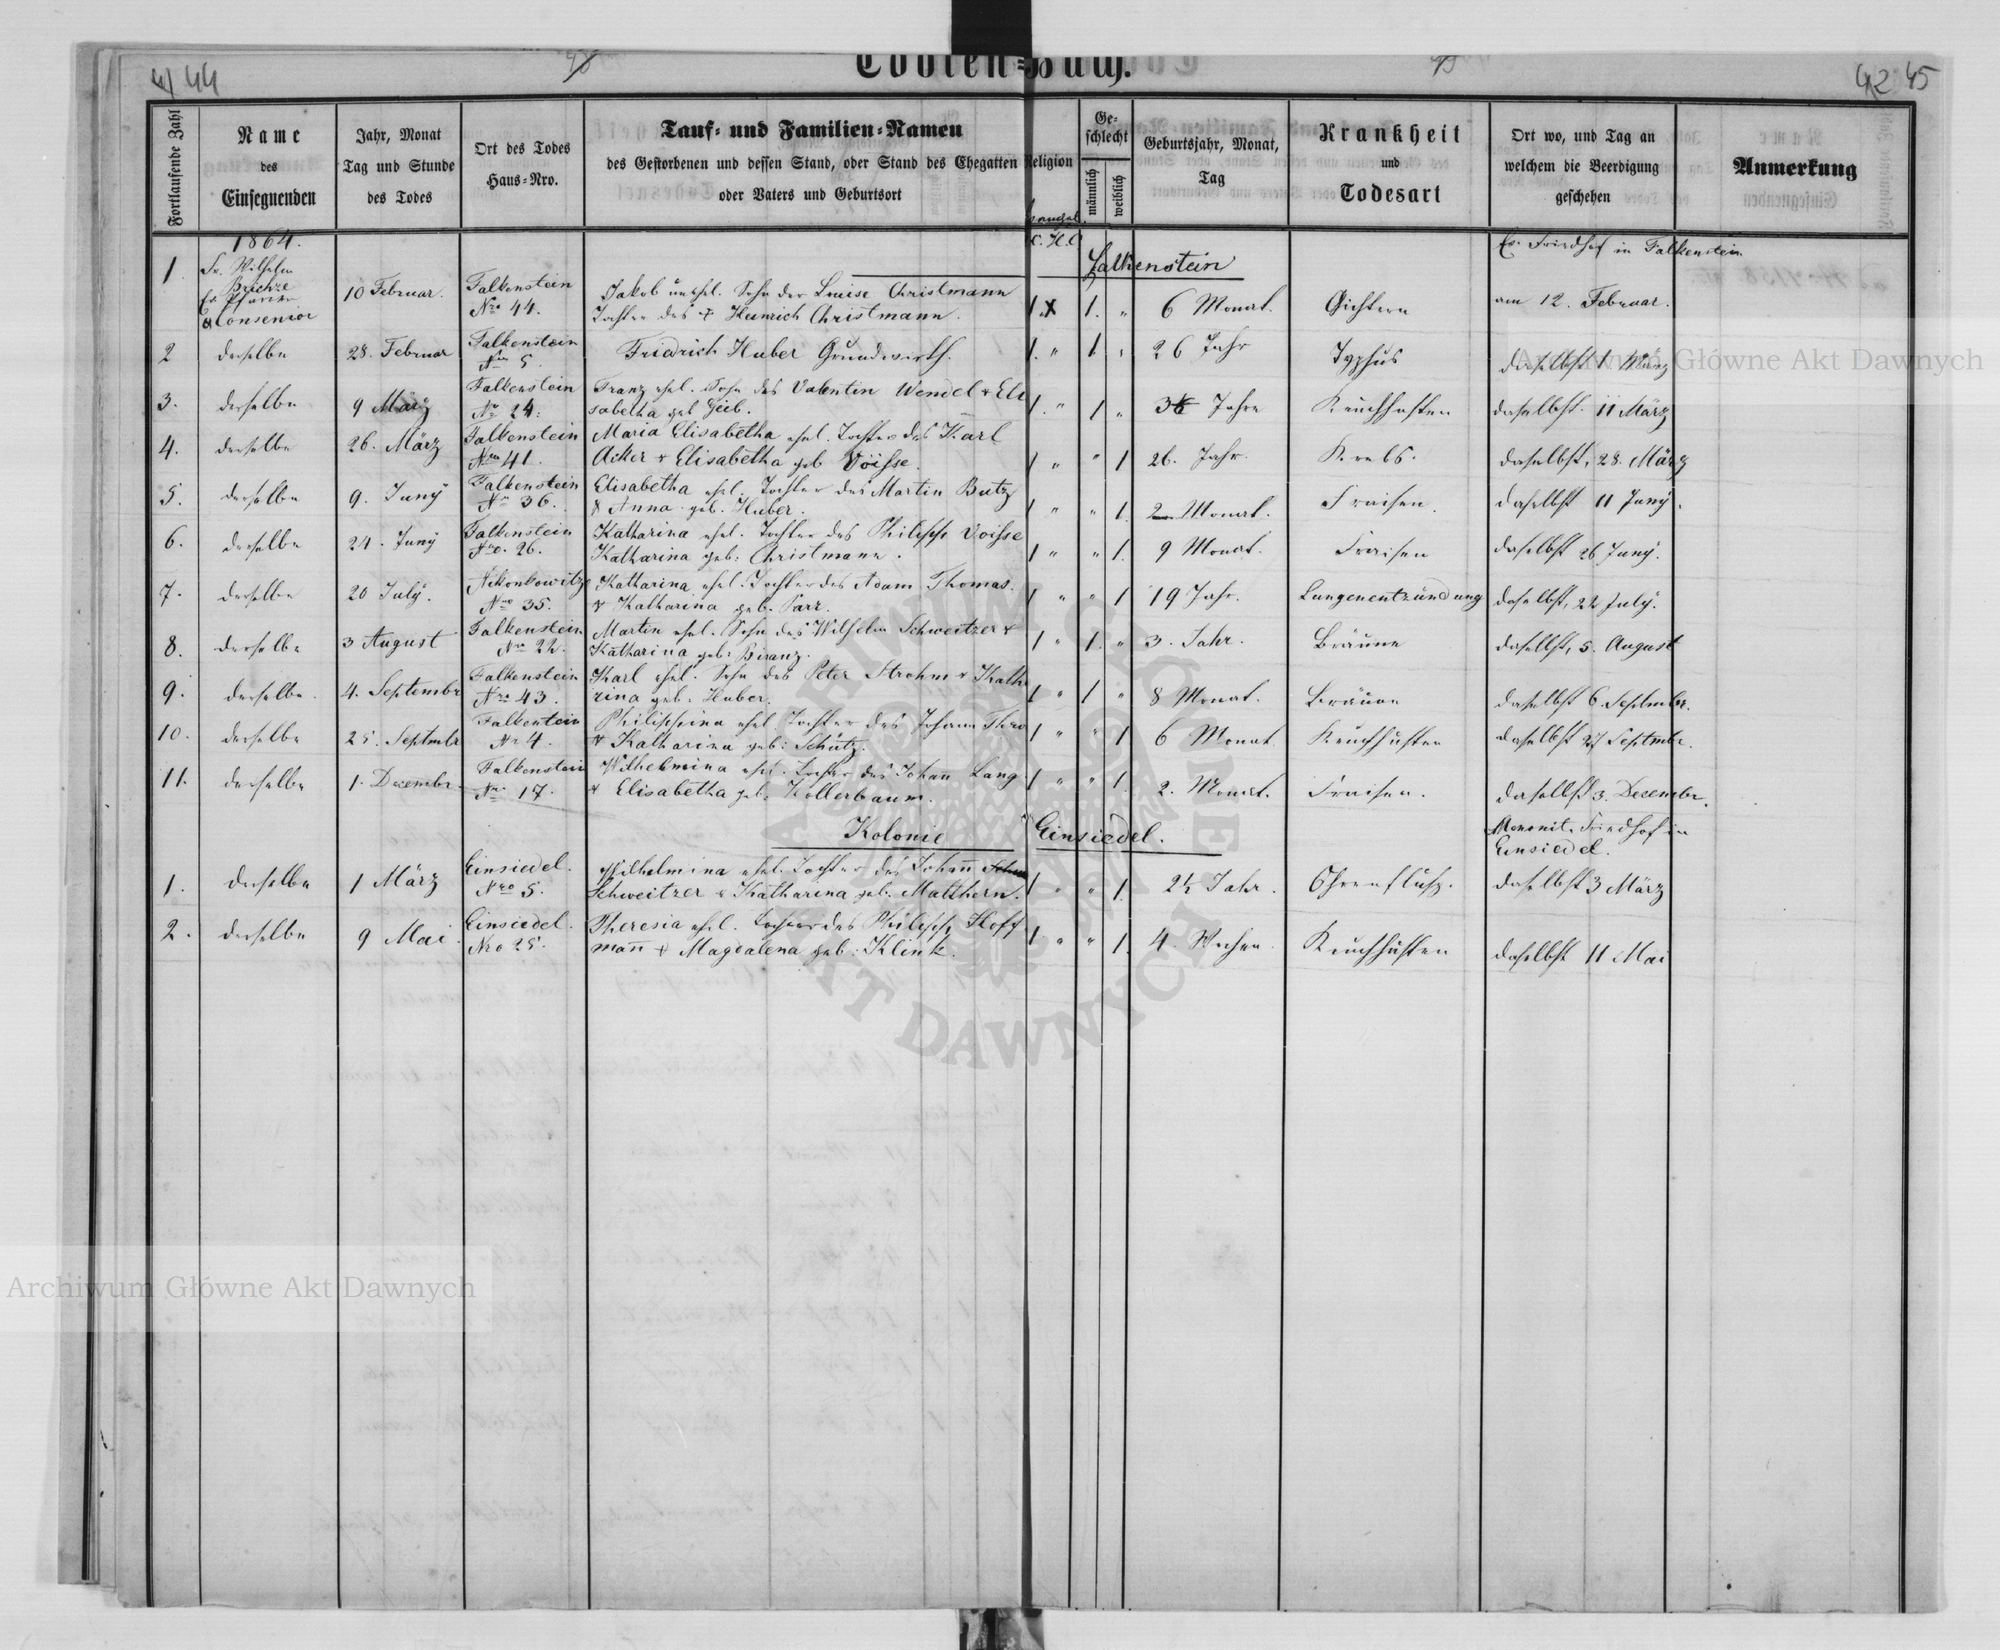 44
42 45
Todten-Buch.
Fortlaufende Zahl
Name
des
Einsegnenden
Jahr, Monat
Tag und Stunde
des Todes
Ort des Todes
Haus-Nro.
Tauf- und Familien-Namen
des Gestorbenen und dessen Stand, oder Stand des Ehegatten
oder Vaters und Geburtsort
Religion
Ge-
schlecht
männlich
weiblich
Geburtsjahr, Monat,
Tag
Krankheit
und
Todesart
Ort wo, und Tag an
welchem die Beerdigung
geschehen
Anmerkung
1864.
Falkenstein
Ev. Friedhof in Falkenstein
1. Fr. Wilhelm
Ev. Pfarrer
& Consenior
10 Februar. Falkenstein
Nro 44.
Jakob unehl. Sohn der Luise Christmann
Tochter des + Heinrich Christmann.
1. 1. " 6 Monat. Gichtern am 12. Februar.
2 derselbe 28. Februar Falkenstein
Nro 5.
Friedrich Huber Grundwirth. 1. " 1 " 26 Jahr Typhus daselbst 1 März
3. derselbe 9 März Falkenstein
No 24.
Franz ehel. Sohn des Valentin Wendel & Eli
sabetha geb Geib.
1. " 1 " Jahre Keuchhusten daselbst. 11 März
4. derselbe 26. März Falkenstein
Nro 41.
Maria Elisabetha ehel. Tochter des Karl
Acker & Elisabetha geb Voisse.
1 " " 1 26. Jahr. Krebs. daselbst, 28. März
5. derselbe 9. Juny Falkenstein
No 36.
Elisabetha ehel. Tochter des Martin Butz
& Anna geb. Huber.
1 " " 1. 2 Monat. Fraisen. daselbst 11 Juny.
6. derselbe 24. Juny Falkenstein
Nro. 26.
Katharina ehel. Tochter des Philipp Voisse
Katharina geb. Christmann.
1 " " 1. 9 Monat. Fraisen daselbst 26 Juny.
7. derselbe 20 July. Nikonkowitz
Nro 35.
Katharina ehel. Tochter des Adam Thomas.
& Katharina geb. Parr.
1 " " 1 19 Jahr. Lungenentzündung daselbst, 22 July.
8. derselbe 3 August Falkenstein
Nro 22.
Martin ehel. Sohn des Wilhelm Schweitzer &
Katharina geb.
1 " 1. " 3. Jahr. Bräune daselbst, 5. August
9. derselbe. 4. Septembr Falkenstein
Nro 43.
Karl ehel. Sohn des Peter Strohm & Katha
rina geb. Huber.
1 " 1 " 8 Monat. Bräune daselbst 6. Septembr.
10. derselbe 25. Septmbr Falkentein
Nr 4.
Philippina ehel Tochter des Johann Thro
& Katharina geb: Schütz.
1 " " 1 6 Monat Keuchhusten daselbst 27 Septmbr.
11. derselbe 1. Decembr. Falkenstein
Nro 17.
Wilhelmina ehel. Tochter des Johan Lang
& Elisabetha geb. Kollerbaum.
1 " " 1. 2. Monat. Fraisen. daselbst 3. Decembr.
Kolonie Einsiedel.
Mennonit. Friedhof in
Einsiedel.
1. derselbe 1 März Einsiedel.
Nro 5.
Wilhelmina ehel. Tochter des Johann
Schweitzer & Katharina geb. Matthern.
1 " " 1. 2½ Jahr. Ohrenfluss. daselbst 3 März
2. derselbe 9 Mai. Einsiedel.
Nro 25.
Theresia ehel. Tochter des Philipp Hoff
mann & Magdalena geb: Klink.
1. " " 1. 4. Wochen. Keuchhusten daselbst 11 Mai
Archiwum Główne Akt Dawnych
Archiwum Główne Akt Dawnych
ARCHIWUM GŁÓWNE AKT DAWNYCH